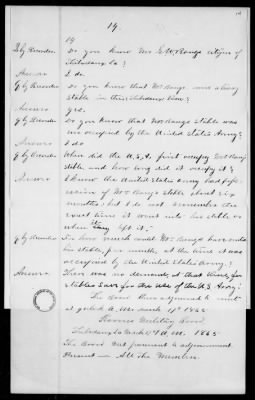 19.
19
Q by Recorder. Do you know Mr G. W. Bangs citizen of
Thibodaux La?
Answer I do.
Q by Recorder Do you know that Mr Bangs owns a livery
stable in this Thibodaux Town?
Answer yes.
Q by Recorder Do you know that Mr Bangs stable
was occupied by the United States Army?
Answer I do
Q by Recorder When did the U.S.A. first occupy Mr Bangs
stable and how long did it occupy it?
Answer I know the United States Army had poss
ession of Mr Bangs stable about six
months; but I do not remember the
exact time it went into his stable or
when they left it.
Q by Recorder For how much could Mr Bangs have rented
his stable, per month, at the time it was
occupied by the United States Army?
Answer There was no demand, at that time, for
stables save for the use of the U.S. Army.
The Board then adjourned to meet
at 9 o'clock A.M. March 17th 1865
Rooms Military Board
Thibodaux La March 17th A.M. 1865
The Board met pursuant to adjournment
Present — All the Members.